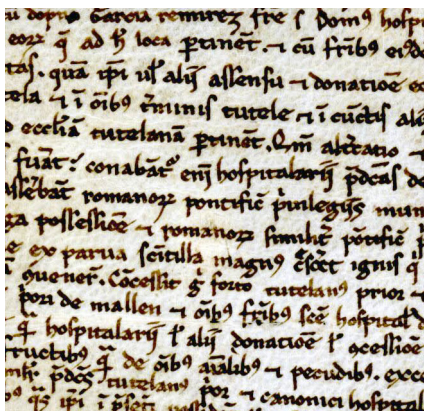 dopno Garcia remireȝ fr̄e ⁊ Domꝰ hospi
eoꝝ q̄ ad h̄ loca ꝑtinēt. ⁊ cū fr̄ibꝰ eiꝰde
tas. quā ip̄i ul̓ alij assensu ⁊ donatiōe
tela ⁊ ī oībꝰ t̓minis tutele ⁊ ī cūctis
eccl̄iā tutelanā ꝑtinēt. Qm̄ alt̓catio
fuāt. conabāt᷑ em̄ hospitalarij p̄dc̄as de
romanoꝝ pontific̄ p̓uilegijs mun
ga possessiōe ⁊ romanoꝝ similit̓ pōtific̄
e ex parua scītilla magnꝰ c̓sc̄et ignis q̓
quener̄. Cōcessit g̓ forto tutelanꝰ prior ⁊
p̓ori de mallen ⁊ oībꝰ fr̄ibꝰ sc̄e hospital
q̄ hospitalarij l̓ alij donatiōe l̓ ōcessiōe
ructibꝰ q̄ de oībꝰ aīalibꝰ ⁊ pecudibꝰ. exce
p̄dcꝰ tutelanꝰ p̓or ⁊ canonici hospital
ip̄i ī